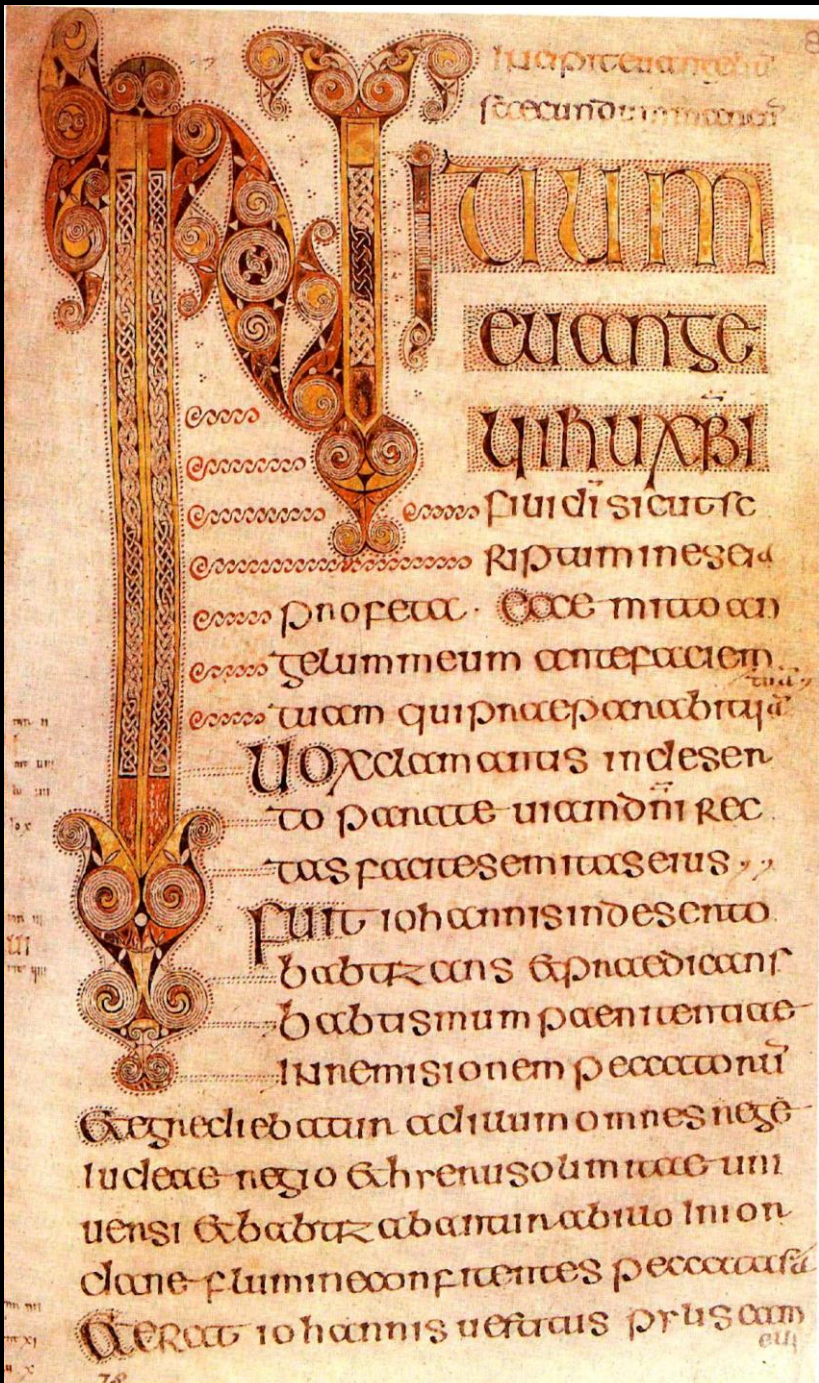 Incipit evangeliū
scđ secundum marcū
INITIUM
evange
lii ihu xpi
filii dī sicut sc
riptum in esei a
profeta · Ecce mitto an
gelum meum ante faciem
tuam qui praeparabit uia
tuā
Uox clamantis in deser
to parate uiam dn̄i rec
tas facite semitas eius
Fuit iohannis in deserto
babtizans & praedicans
babtismum paenitentiae
in remisionem peccatorū
& egrediebatur ad illum omnes rege
iudeae regio & hierusolimitae uni
uersi & babtizabantur ab illo in ior
dane flumine confitentes peccata sā
& erat iohannis uestitus pylis cam
eli